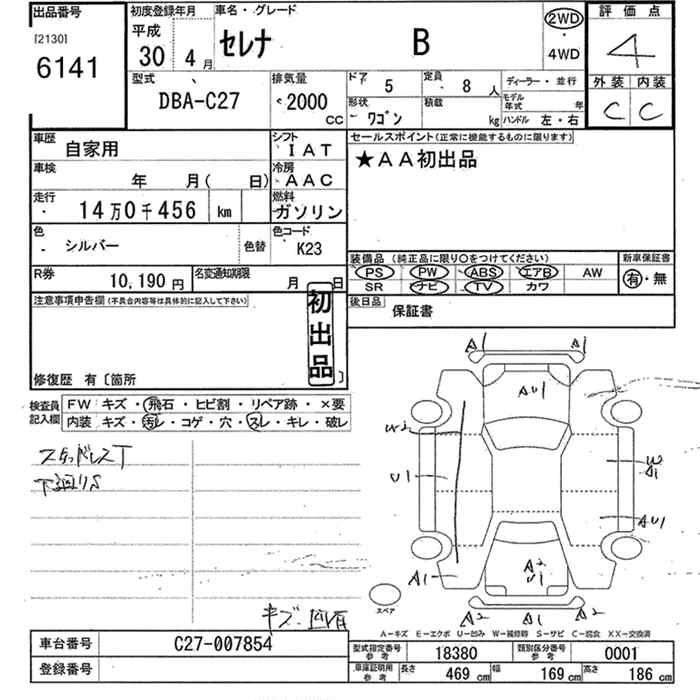 出品番号
[2130]
6141
初度登録年月
平成
30 4月
車名・グレード
セレナ B
2WD
・
4WD
評価点
4
外装 内装
C C
型式
DBA-C27
排気量
<2000 CC
ドア 5
定員 8 人
ディーラー・並行
形状
ワゴン
積載 kg
モデル年式 年
ハンドル 左・右
車歴
自家用
シフト
IAT
車検
年 月( 日)
冷房
AAC
走行
14万0千456 km
燃料
ガソリン
色
シルバー
色替
色コード
K23
R券
10,190円
名変通知期限
月 日
セールスポイント(正常に機能するものに限ります)
★AA初出品
装備品 (純正品に限り○をつけてください)
PS PW ABS エアB AW
SR ナビ TV カワ
新車保証書
有・無
後日品
保証書
注意事項申告欄(不具合内容等は具体的に記入して下さい)
初出品
修復歴 有〔箇所 〕
検査員記入欄
FW キズ・飛石・ヒビ割・リペア跡・×要
内装 キズ・汚レ・コゲ・穴・スレ・キレ・破レ
スタッドレスT
下廻りS
A1 A1
AU1
W2
U1
W A1
AU1
A1
A2 U1
A2 A1 A2
スペア
A-キズ E-エクボ U-凹み W-補修跡 S-サビ C-腐食 XX-交換済
車台番号
C27-007854
登録番号
型式指定番号 参考
18380
類別区分番号 参考
0001
車庫証明用 参考
長さ 469 cm 幅 169 cm 高さ 186 cm